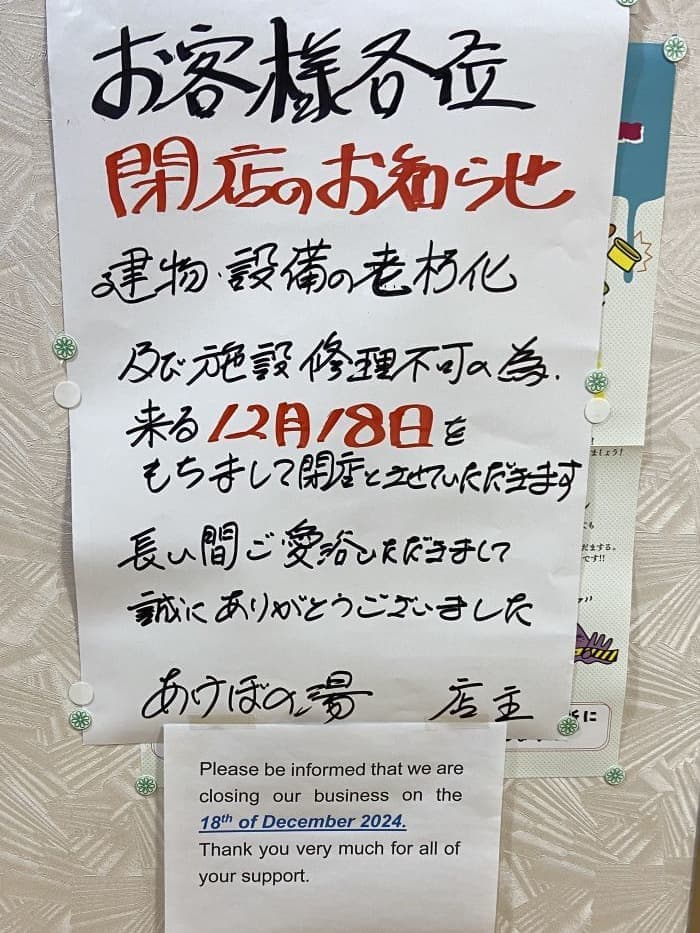 お客様各位
閉店のお知らせ
建物・設備の老朽化
及び施設修理不可の為、
来る12月18日を
もちまして閉店とさせていただきます
長い間ご愛浴いただきまして
誠にありがとうございました
あけぼの湯 店主
Please be informed that we are
closing our business on the
18th of December 2024.
Thank you very much for all of
your support.
ましょう!
だまする。
です!!